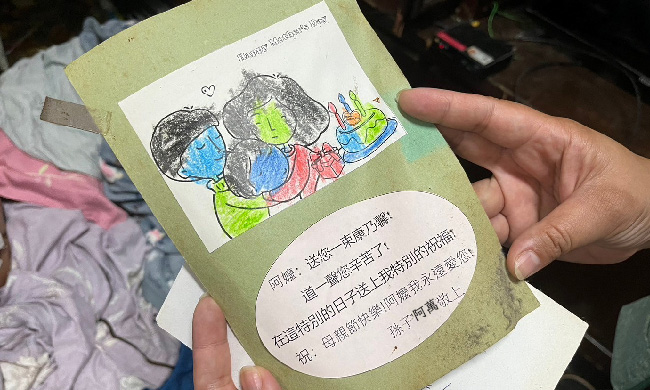 Happy Mother's Day!
阿嬤：送您一束康乃馨！
道一聲您辛苦了！
在這特別的日子送上我特別的祝福！
祝：母親節快樂!阿嬤我永遠愛您!
孫子阿萬敬上